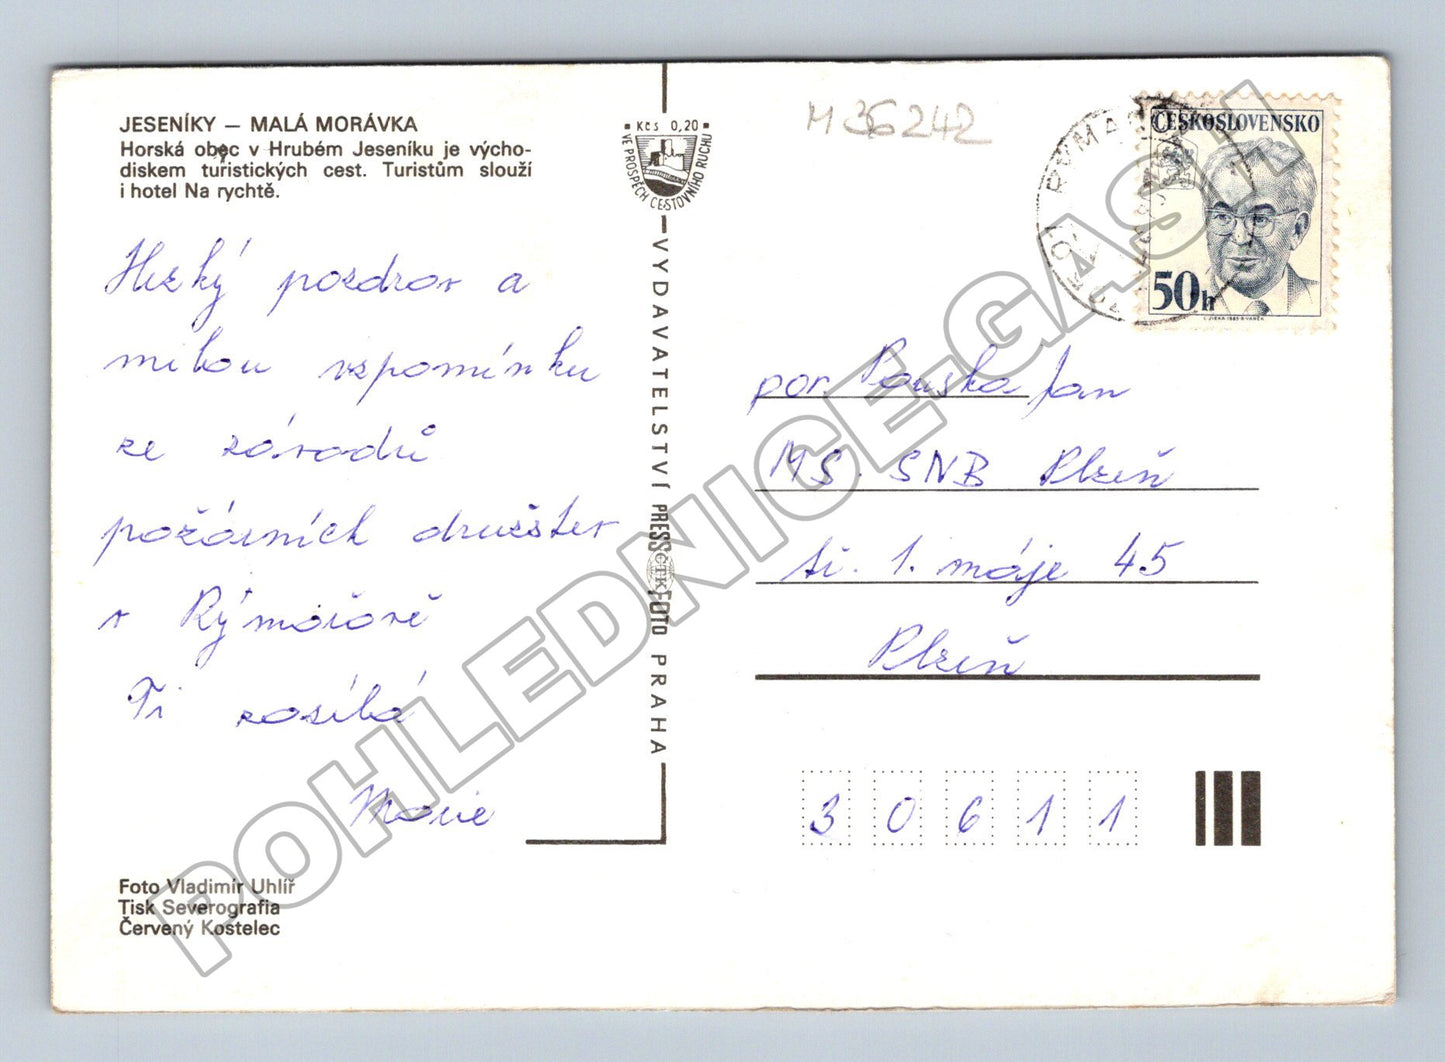 JESENÍKY – MALÁ MORÁVKA
Horská obec v Hrubém Jeseníku je výcho-
diskem turistických cest. Turistům slouží
i hotel Na rychtě.
Hezký pozdrav a
milou vzpomínku
ze závodů
požárních družstev
v Rýmařově
Ti zasílá
Marie
Foto Vladimír Uhlíř
Tisk Severografia
Červený Kostelec
Kčs 0,20
VE PROSPĚCH CESTOVNÍHO RUCHU
VYDAVATELSTVÍ PRESSFOTO PRAHA
ČTK
M 36242
ČESKOSLOVENSKO
50h
por. Pouska Jan
MS. SNB Plzeň
tř. 1. máje 45
Plzeň
3 0 6 1 1
POHLEDNICE-GASH